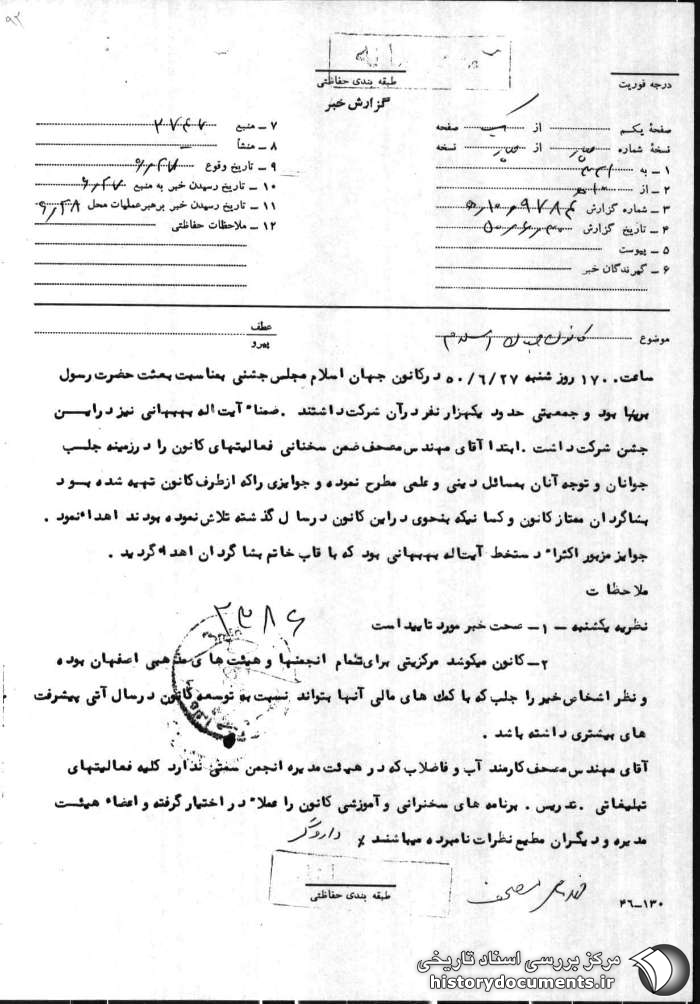 ۹۲
طبقه بندی حفاظتی
گزارش خبر
درجه فوریت
صفحهٔ یکم از یک صفحه
نسخهٔ شماره از نسخه
۱ ـ به
۲ ـ از
۳ ـ شماره گزارش
۴ ـ تاریخ گزارش ۵۰/۶/۳۰
۵ ـ پیوست
۶ ـ گیرندگان خبر
۷ ـ منبع ۲۷۴۷
۸ ـ منشأ
۹ ـ تاریخ وقوع ۶/۲۷
۱۰ ـ تاریخ رسیدن خبر به منبع ۶/۲۷
۱۱ ـ تاریخ رسیدن خبر برهبر عملیات محل ۶/۲۸
۱۲ ـ ملاحظات حفاظتی
موضوع کانون جهان اسلام
عطف
پیرو
ساعت ۱۷۰۰ روز شنبه ۵۰/۶/۲۷ در کانون جهان اسلام مجلس جشنی بمناسبت بعثت حضرت رسول
برپا بود و جمعیتی حدود یکهزار نفر در آن شرکت داشتند . ضمناً آیت اله بهبهانی نیز در ایــن
جشن شرکت داشت . ابتدا آقای مهندس مصحف ضمن سخنانی فعالیتهای کانون را در زمینه جلــب
جوانان و توجه آنان بمسائل دینی و علمی مطرح نموده و جوایزی را که از طرف کانون تهیه شده بــود
بشاگردان ممتاز کانون و کسانیکه بنحوی در این کانون در سال گذشته تلاش نموده بودند اهداء نمود .
جوایز مزبور اکثراً دستخط آیت اله بهبهانی بود که با قاب خاتم بشاگردان اهداء گردید .
ملاحظات
نظریه یکشنبه ــ ۱ــ صحت خبر مورد تایید است
۲۳۸۶
۲ــ کانون میکوشد مرکزیتی برای تمام انجمنها و هیئت های مذهبی اصفهان بوده
و نظر اشخاص خیر را جلب که با کمک های مالی آنها بتواند نسبت به توسعه کانون در سال آتی پیشرفت
های بیشتری داشته باشد .
آقای مهندس مصحف کارمند آب و فاضلاب که در هیئت مدیره انجمن سمتی ندارد کلیه فعالیتهای
تبلیغاتی . تدریس . برنامه های سخنرانی و آموزشی کانون را عملاً در اختیار گرفته و اعضاء هیئــت
مدیره و دیگران مطیع نظرات نامبرده میباشند
طبقه بندی حفاظتی
مهندس مصحف
۴۶ــ۱۳۰
مرکز بررسی اسناد تاریخی
historydocuments.ir